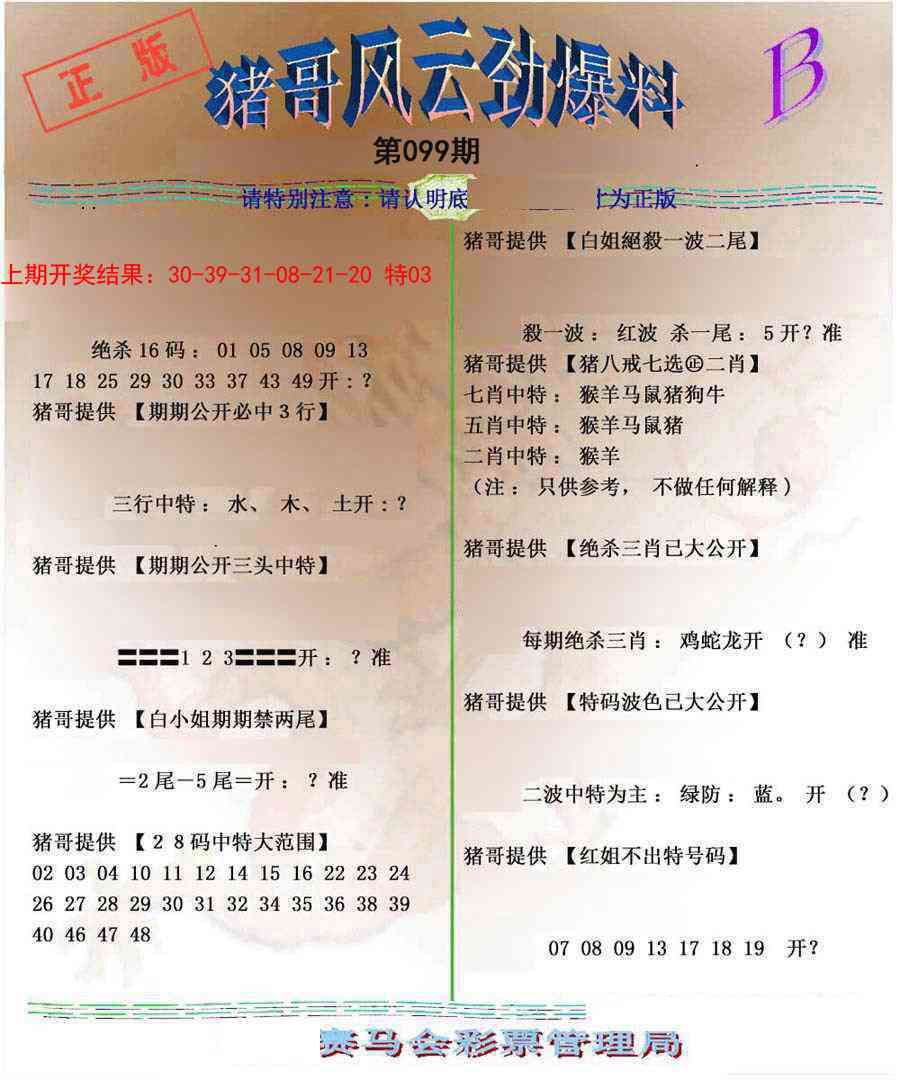 正版
猪哥风云劲爆料
B
第099期
请特别注意：请认明底
为正版
上期开奖结果：30-39-31-08-21-20 特03
绝杀16码：01 05 08 09 13
17 18 25 29 30 33 37 43 49开:？
猪哥提供 【期期公开必中3行】
三行中特：水、木、土开:？
猪哥提供 【期期公开三头中特】
〓〓〓1 2 3〓〓〓开：？准
猪哥提供 【白小姐期期禁两尾】
＝2尾－5尾＝开：？准
猪哥提供 【28码中特大范围】
02 03 04 10 11 12 14 15 16 22 23 24
26 27 28 29 30 31 32 34 35 36 38 39
40 46 47 48
猪哥提供 【白姐絕殺一波二尾】
殺一波：红波 杀一尾：5开？准
猪哥提供 【猪八戒七选㊣二肖】
七肖中特：猴羊马鼠猪狗牛
五肖中特：猴羊马鼠猪
二肖中特：猴羊
（注：只供参考，不做任何解释）
猪哥提供 【绝杀三肖已大公开】
每期绝杀三肖：鸡蛇龙开（？）准
猪哥提供 【特码波色已大公开】
二波中特为主：绿防：蓝。开（？）
猪哥提供 【红姐不出特号码】
07 08 09 13 17 18 19 开?
赛马会彩票管理局